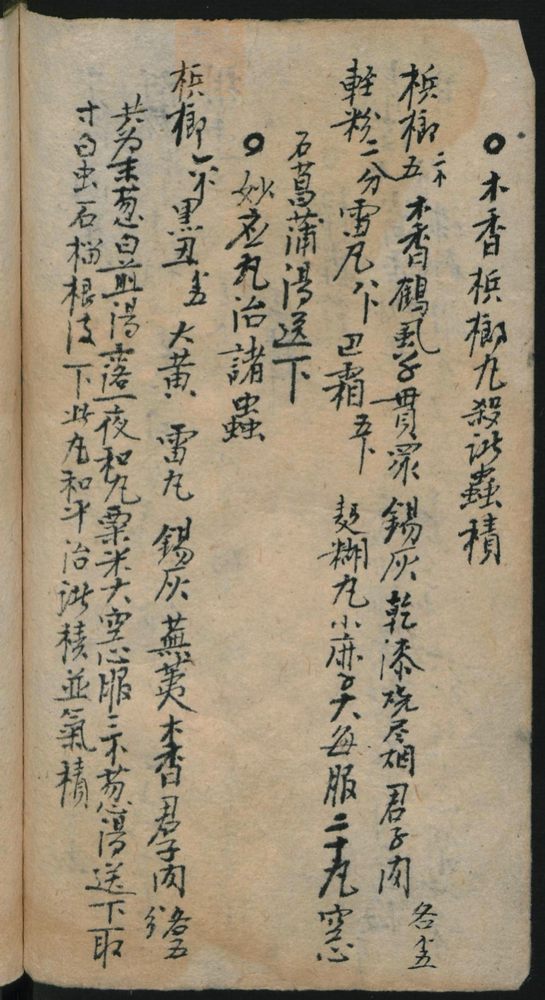 ○木香梹榔丸殺諸蟲積
梹榔五木香鶴虱子貫眾錫灰乾漆燒尽烟君子肉各五
輕粉二分雷丸巴霜五麪糊丸小麻子大每服二十丸空心
石菖蒲湯送下
○妙应丸治諸蟲
梹榔黑丑五大黃雷丸錫灰蕪荑木香君子肉各五
共為末葱白煎湯露一夜和丸粟米大空心服三葱湯送下取
寸白虫石榴根皮下此丸和平治諸積並氣積